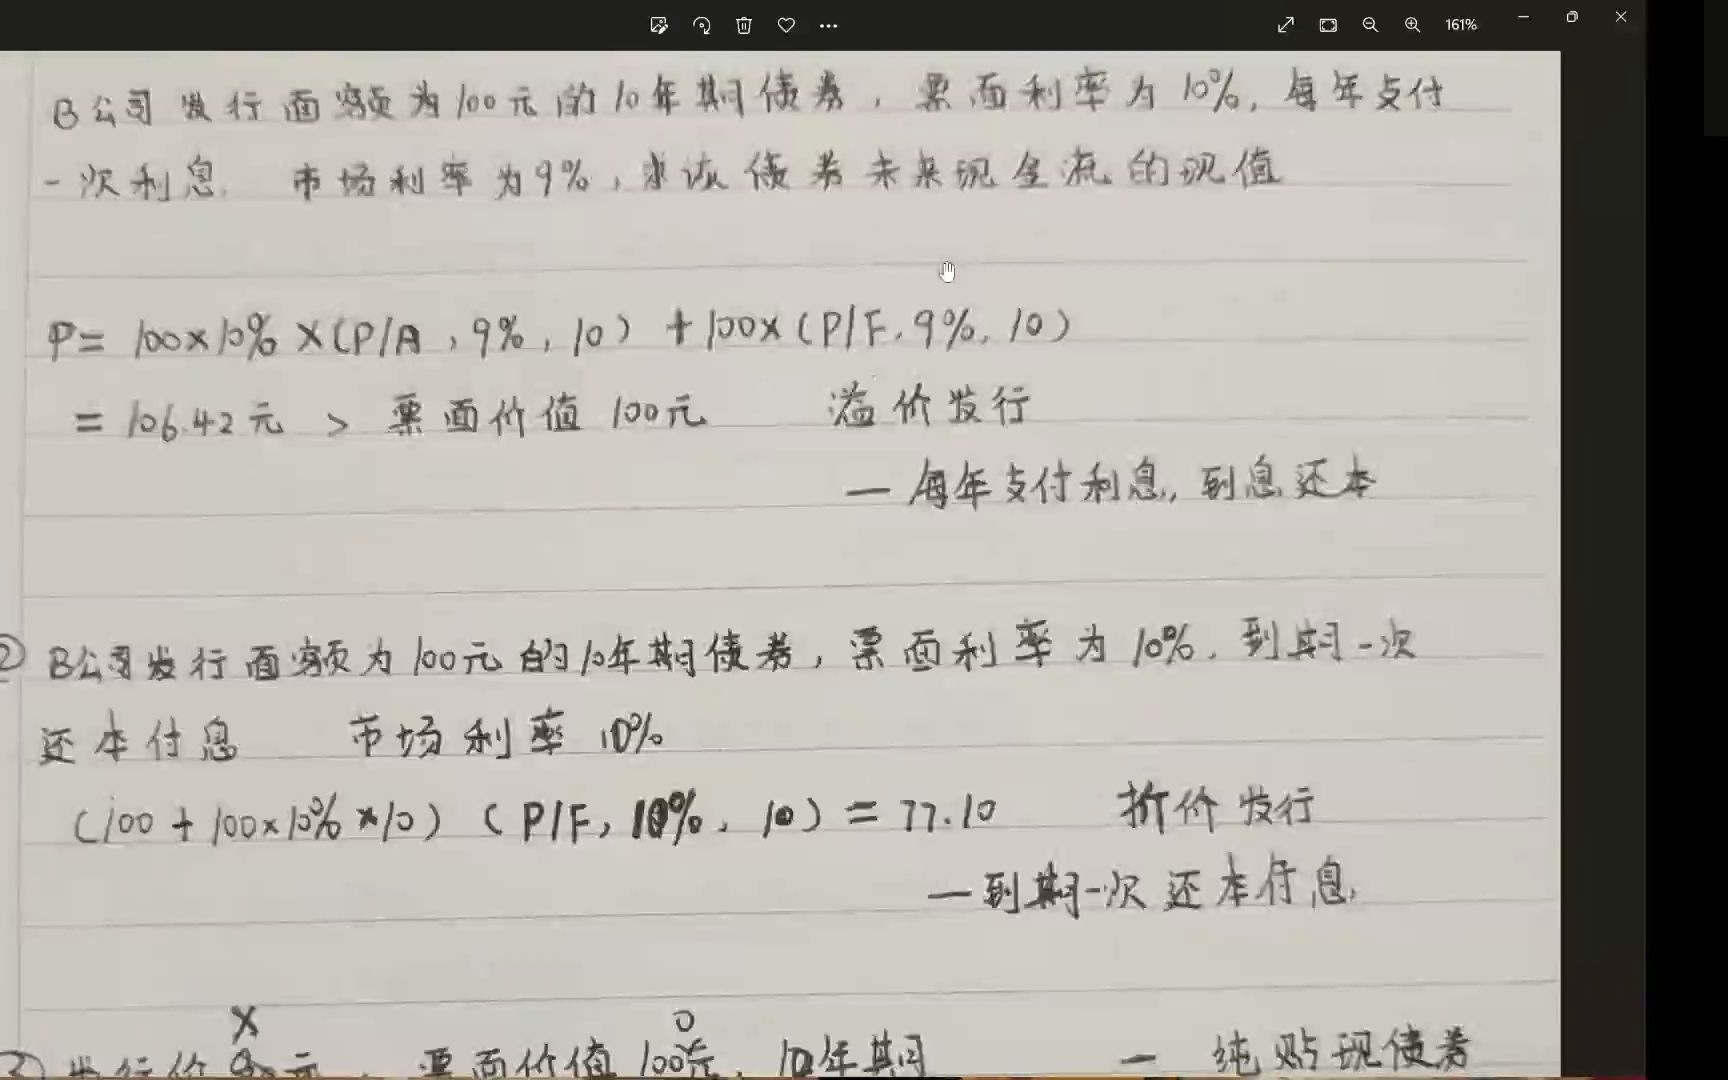 161%
B公司发行面额为100元的10年期债券，票面利率为10%，每年支付
一次利息. 市场利率为9%，求该债券未来现金流的现值
P= 100×10% ×(P/A，9%，10) +100×(P/F，9%，10)
= 106.42元 > 票面价值 100元 溢价发行
— 每年支付利息，到息还本
② B公司发行面额为100元的10年期债券，票面利率为10%，到期一次
还本付息 市场利率 10%
(100 + 100×10% ×10) (P/F，10%，10) = 77.10 折价发行
— 到期一次还本付息.
X 0
③ 发行价 元，票面价值 100元，10年期 — 纯贴现债券